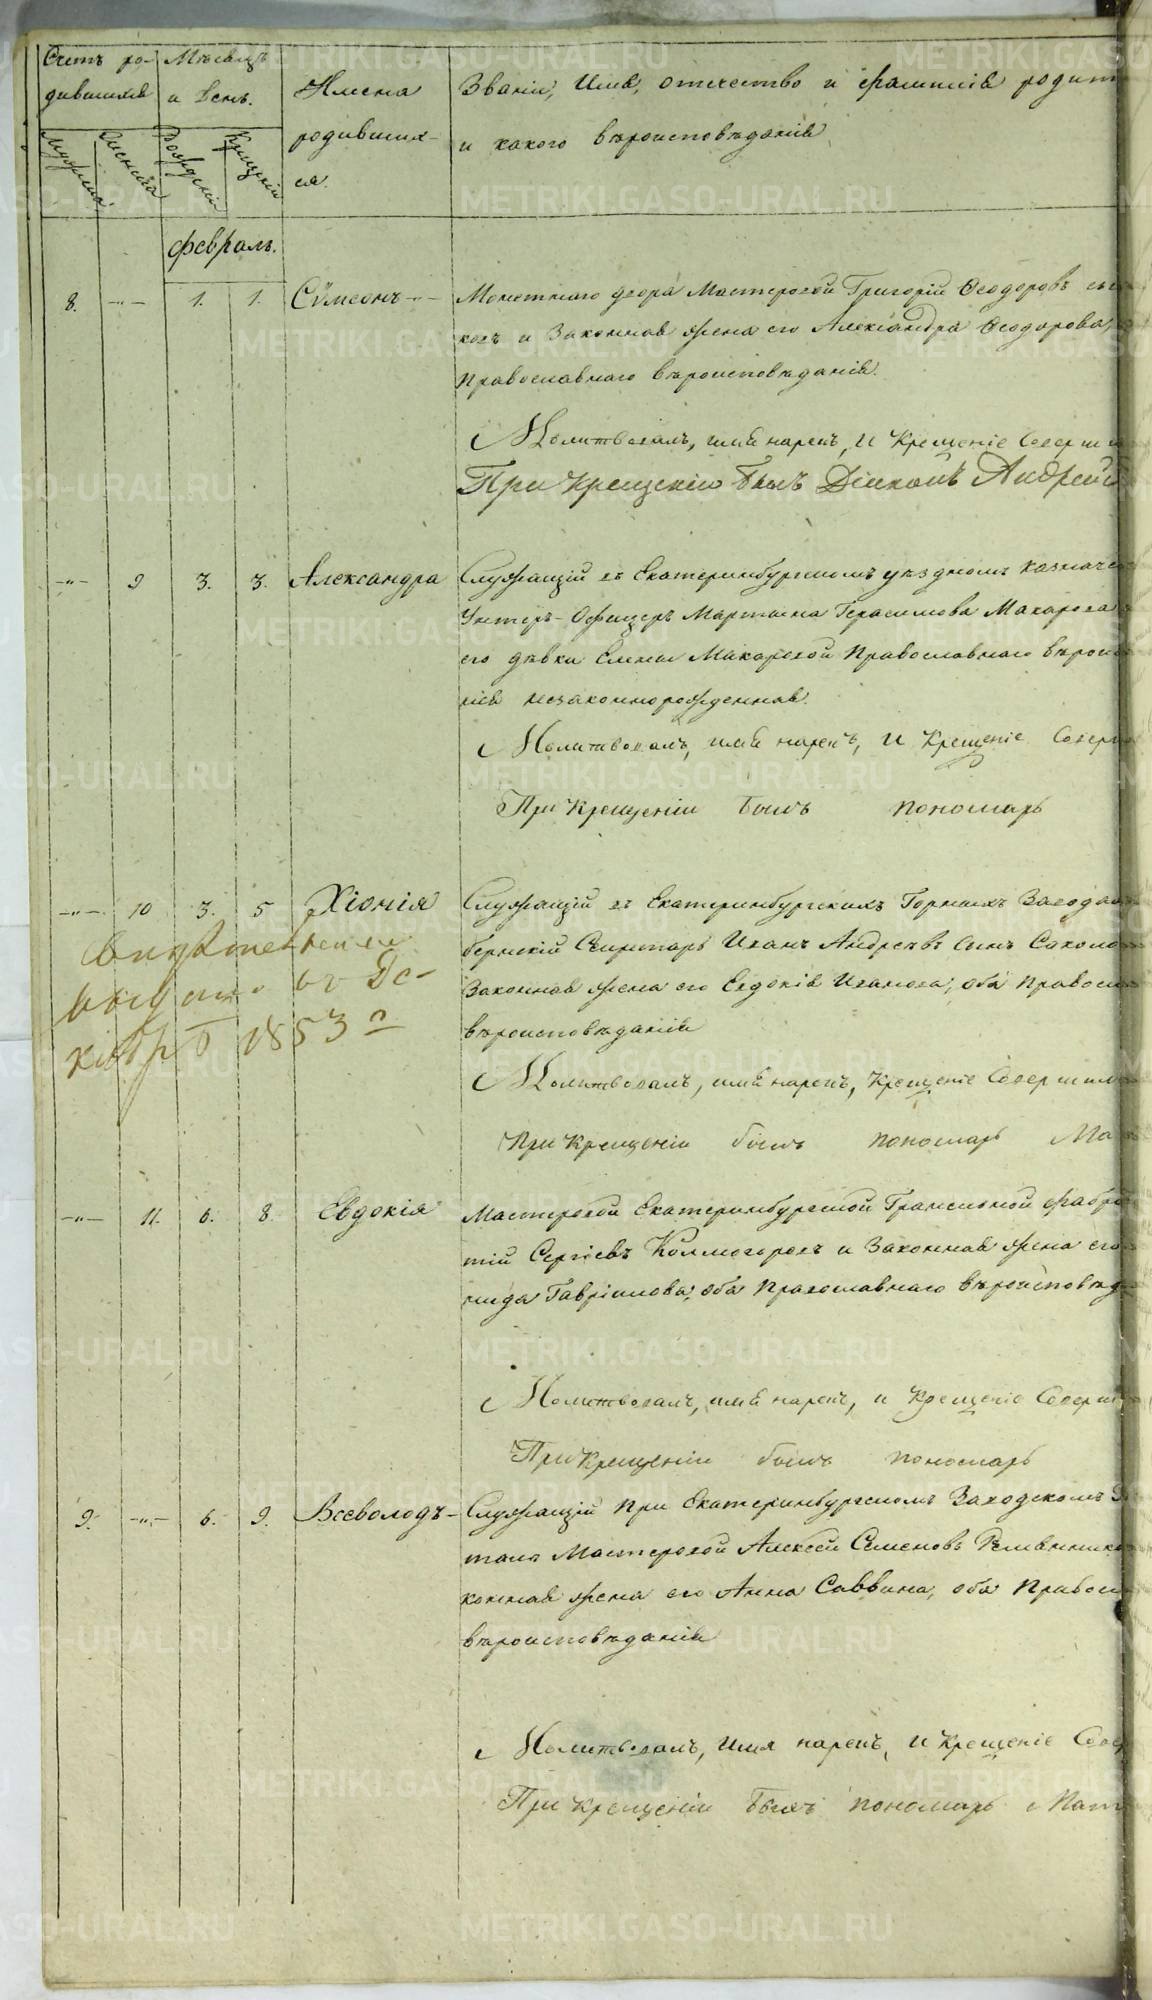 Счетъ ро- Мѣсяцъ Имена Званіе, Имя, отчество и фамилія родит
дившихся и День. родивших- и какого вѣроисповѣданія
Мужска Женска Рожденія Крещенія ся.
Февраль.
8. —„— 1. 1. Сѵмеонъ Монетнаго двора Мастеровой Григорій Ѳеодоровъ
и Законная жена его Александра Ѳеодорова,
Православнаго вѣроисповѣданія.
Молитвовалъ, имя нарекъ, и Крещеніе Соверши
При Крещеніи былъ Діаконъ Андрей
—„— 9 3. 3. Александра Служащій въ Екатеринбургскомъ уѣздномъ казначе
Унтеръ-Офицеръ Мартына Герасимова Макарова
его дѣвки Елены Макаровой Православнаго вѣроис
нія незаконнорожденная.
Молитвовалъ, имя нарекъ, и Крещеніе Совер
При Крещеніи былъ пономарь
—„— 10 3. 5 Хіонія Служащій въ Екатеринбургскихъ Горныхъ Завода
бернскій Секретарь Иванъ Андреевъ Сынъ Соколо
Законная жена его Евдокія Иванова, оба Правосл
вѣроисповѣданія
Молитвовалъ, имя нарекъ, Крещеніе Совершил
При Крещеніи былъ пономарь Ма
выдано въ Де-
1853 г
—„— 11. 6. 8. Евдокія Мастеровой Екатеринбургской Гранильной фабри
тій Сергіевъ Колмогоровъ и Законная жена его
нида Гавріилова, оба Православнаго вѣроисповѣд
Молитвовалъ, имя нарекъ, и Крещеніе Соверш
При Крещеніи былъ пономарь
9. —„— 6. 9. Всеволодъ Служащій при Екатеринбургскомъ Заводскомъ
талѣ Мастеровой Алексѣй Семеновъ
конная жена его Анна Саввина, оба Правосл
вѣроисповѣданія
Молитвовалъ, имя нарекъ, и Крещеніе Сове
При Крещеніи былъ пономарь Мат
METRIKI.GASO-URAL.RU